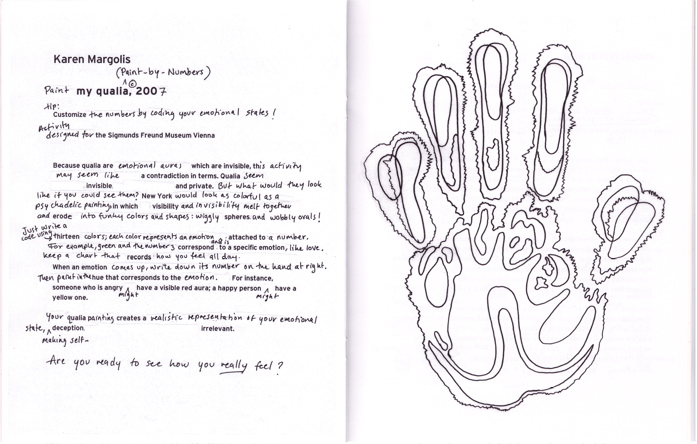 Karen Margolis
(Paint-by-Numbers)
Paint my qualia, 2007
tip:
Customize the numbers by coding your emotional states!
Activity
designed for the Sigmunds Freund Museum Vienna
Because qualia are emotional auras which are invisible, this activity
may seem like a contradiction in terms. Qualia seem
invisible and private. But what would they look
like if you could see them? New York would look as colorful as a
psychadelic painting in which visibility and invisibility melt together
and erode into funky colors and shapes: wiggly spheres and wobbly ovals!
Just write a
code using thirteen colors; each color represents an emotion and is attached to a number.
For example, green and the number 3 correspond to a specific emotion, like love.
keep a chart that records how you feel all day.
When an emotion comes up, write down its number on the hand at right.
Then paint in the hue that corresponds to the emotion. For instance,
someone who is angry might have a visible red aura; a happy person might have a
yellow one.
Your qualia painting creates a realistic representation of your emotional
state, making self-deception irrelevant.
Are you ready to see how you really feel?